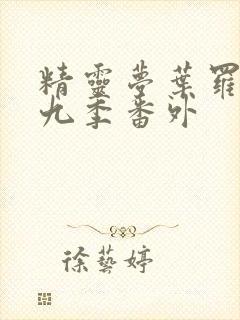 精靈夢葉羅
九季番外
徐藝婷